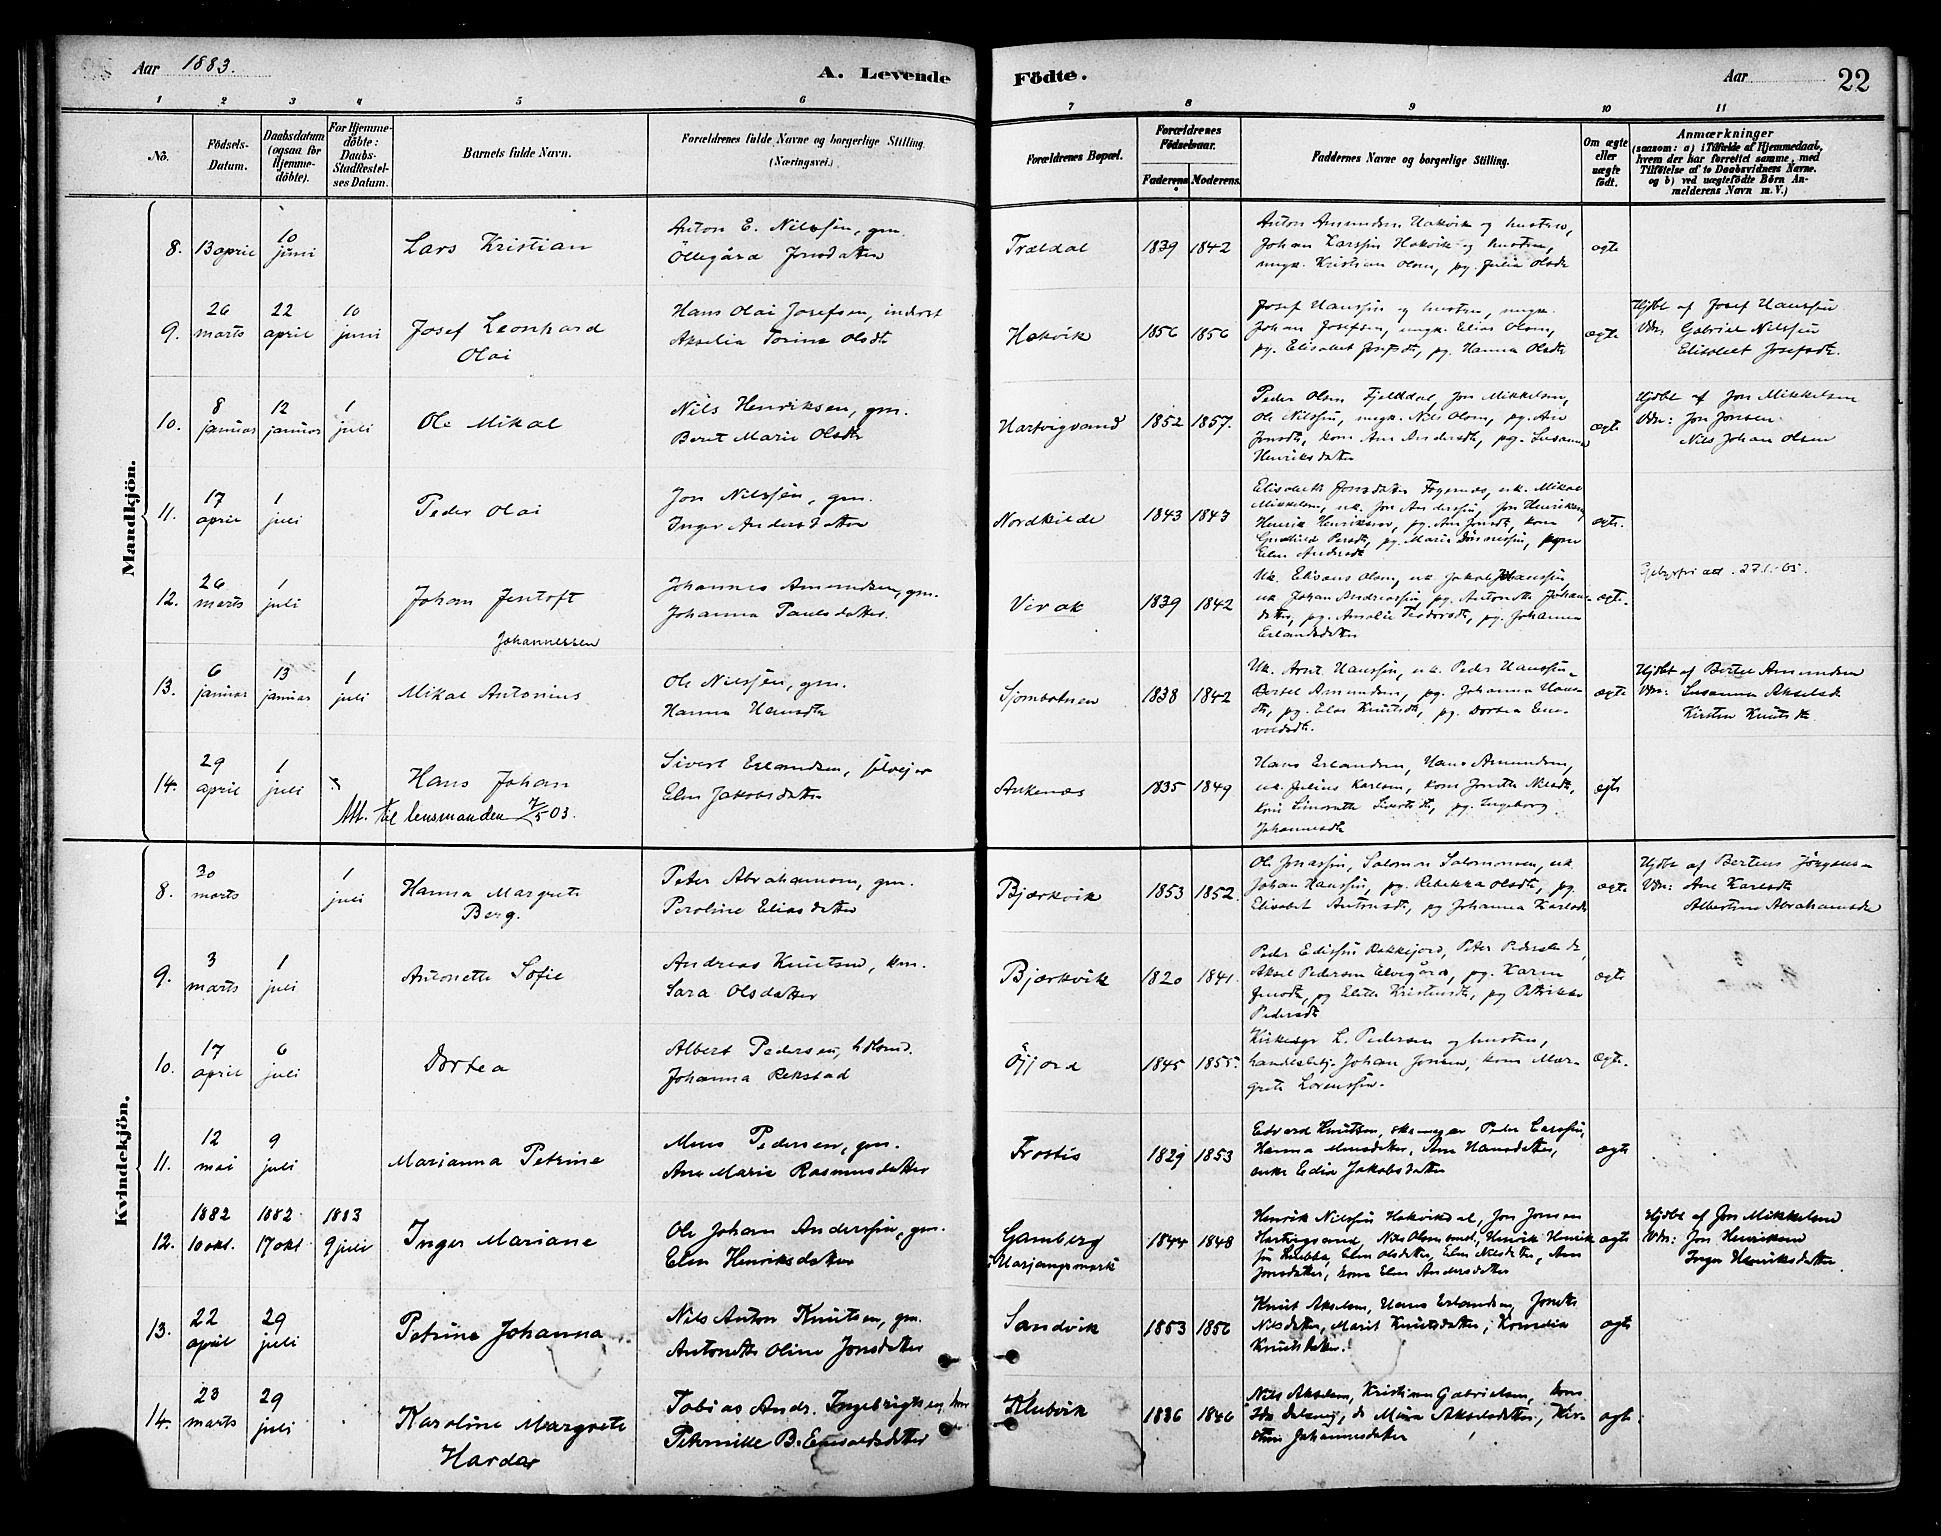 Aar 1883.
A. Levende
Födte.
Aar
22
1 2 3 4 5 6 7 8 9 10 11
No.
Födsels-Datum.
Daabsdatum (ogsaa for Hjemme-döbte).
For Hjemme-döbte: Daabs-Stadfæstel-ses Datum.
Barnets fulde Navn.
Forældrenes fulde Navne og borgerlige Stilling. (Næringsvei.)
Forældrenes Bopæl.
Forældrenes Födselsaar.
Faderens
Moderens.
Faddernes Navne og borgerlige Stilling.
Om ægte eller uægte födt.
Anmærkninger
(saasom: a) i Tilfælde af Hjemmedaab, hvem der har forrettet samme, med Tilföielse af to Daabsvidners Navne. og b) ved uægtefödte Börn An-melderens Navn m.V.)
Mandkjön.
8. 13 april 10 juni Lars Kristian
Anton E. Nilssen, gm.
Öllegård Jonsdatter
Trældal 1839 1842
Anton Amundsen Hakvik og hustru,
Johan Larssen Hakvik og hustru,
ungk. Kristian Olsen, pg. Julia Olsdt
ægte
9. 26 marts 22 april 10 juni Josef Leonhard
Olai
Hans Olai Josefsen, inderst
Akselia Torine Olsdt
Hakvik 1856 1856
Josef Hanssen og hustru, ungk.
Johan Josefsen, ungk. Elias Olsen,
pg. Elisabet Josefsdt, pg. Hanna Olsdt
ægte
Hjdbt af Josef Hanssen
Vdn: Gabriel Nilssen
Elisabet Josefsdt.
10. 8 januar 12 januar 1 juli Ole Mikal
Nils Henriksen, gm.
Beret Marie Olsdt
Hartvigvand 1852 1857.
Peder Olsen Fjelddal, Jon Mikkelsen,
Ole Nilssen, ungk. Nils Olsen, pg. Ane
Jonsdt, kone Ane Andersdt, pg. Susanna
Henriksdatter
ægte
Hjdbt af Jon Mikkelsen
Vdn: Jon Jonsen
Nils Johan Olsen
11. 17 april 1 juli Peder Olai
Jon Nilssen, gm.
Inger Andersdatter
Nordkilde 1843 1843
Elisabeth Jonsdatter uk. Mikal
Mikkelsen, uk. Jon Anderssen, Jon Henriksen,
Henrik Henriksen, pg. Ane Jonsdt, kone
pg. Marie
Elen Andersdt
ægte.
12. 26 marts 1 juli Johan Jentoft
Johannessen
Johannes Amundsen, gm.
Johanna Paulsdatter.
Virak 1839 1842
Uk. Elisæus Olsen, uk Jakob Johanssen,
uk Johan Andreassen, pg. Antonette Johans-
datter, pg. Amalie Teodorsdt, pg. Johanna
Erlandsdatter
ægte.
27.1.-65.
13. 6 januar 13 januar 1 juli Mikal Antonius
Ole Nilssen, gm.
Hanna Hansdt
Sjombotnen 1838 1842
Uk. Arnt Hanssen, uk. Peder Hanssen
Bertel Amundsen, pg. Johanna Hans-
dt, pg. Elen Knutsdt, pg. Dortea Ene-
voldsdt.
ægte
Hjdbt af Bertel Amundsen
Vdn: Susanna Akselsdt
Kirsten Knutsdt.
14. 29 april 1 juli Hans Johan
Att. til lensmanden 7/5 03.
Sivert Erlandsen, selvejer
Elen Jakobsdatter
Ankenæs 1835 1849
Hans Erlandsen, Hans Amundsen,
uk. Julius Karlsen, kone Jonette Nilsdt,
Sivertsdt, pg. Ingeborg
Johannesdt
ægte
Kvindekjön.
8. 30 marts 1 juli Hanna Margrete
Berg.
Peter Abrahamsen, gm.
Peroline Eliasdatter
Bjærkvik 1853 1852.
Ole Jonassen, Salomon Salomonsen, uk
Johan Hanssen, pg. Rebekka Olsdt, pg.
Elisabet Antonsdt, pg Johanna Karlsdt
ægte
Hjdbt af Berteus Jörgens-
Vdn: Ane Karlsdt
Albertine Abrahamsdt
9. 3 marts 1 juli Antonette Sofie
Andreas Knutsen, km.
Sara Olsdatter
Bjærkvik 1820 1841.
Peder Edissen Rakkejord, Peter Pedersen
Aksel Pedersen Elvegård, pg. Karen
Jensdt, pg Elette Kristensdt, pg Petrikke
Pedersdt
ægte
10. 17 april 6 juli Dortea
Albert Pedersen,
Johanna Rekstad
Öjjord 1845 1855.
Kirkesgr L. Pedersen og hustru,
handelsbetj. Johan Jensen, kone Mar-
grete Lorenssen.
ægte.
11. 12 mai 9 juli Marianna Petrine
Mons Pedersen, gm.
Ane Marie Rasmusdatter
Trostis 1829 1853
Edvard Knutsen, skomager Peder Larssen,
Hanna Monsdatter, Ane Hansdatter,
enke Edia Jakobsdatter
ægte
12. 1882 10 okt. 1882. 17 okt 1883 9 juli Inger Mariane
Ole Johan Anderssen, gm.
Elen Henriksdatter
Gamberg
i Harjangsmark 1844 1848
Henrik Nilssen Hakvikdal, Jon Jonsen
Hartvigvand, Nils Olsen Henrik Henrik-
sen Elen Olsdatter, Elen Nilsdatter, Ane
Jonsdatter, kone Elen Andersdatter
ægte
Hjdbt af Jon Mikkelsen
Vdn: Jon Henriksen
Inger Henriksdatter.
13. 22 april 29 juli Petrine Johanna
Nils Anton Knutsen, gm.
Antonette Oline Jonsdatter
Sandvik 1853 1856
Knut Akselsen, Hans Erlandsen, Jonette
Nilsdatter, Marit Knutsdatter, Kornelia
Knutsdatter.
ægte
14. 23 marts 29 juli Karoline Margrete
Hardar
Tobias Andr. Ingebrigtsen
Pernille B. Enevoldsdatter
Klubvik 1836 1846
Nils Akselsen, Kristian Gabrielsen, kone
Ida Akselsdatter, Kir-
stine Johannesdatter
ægte